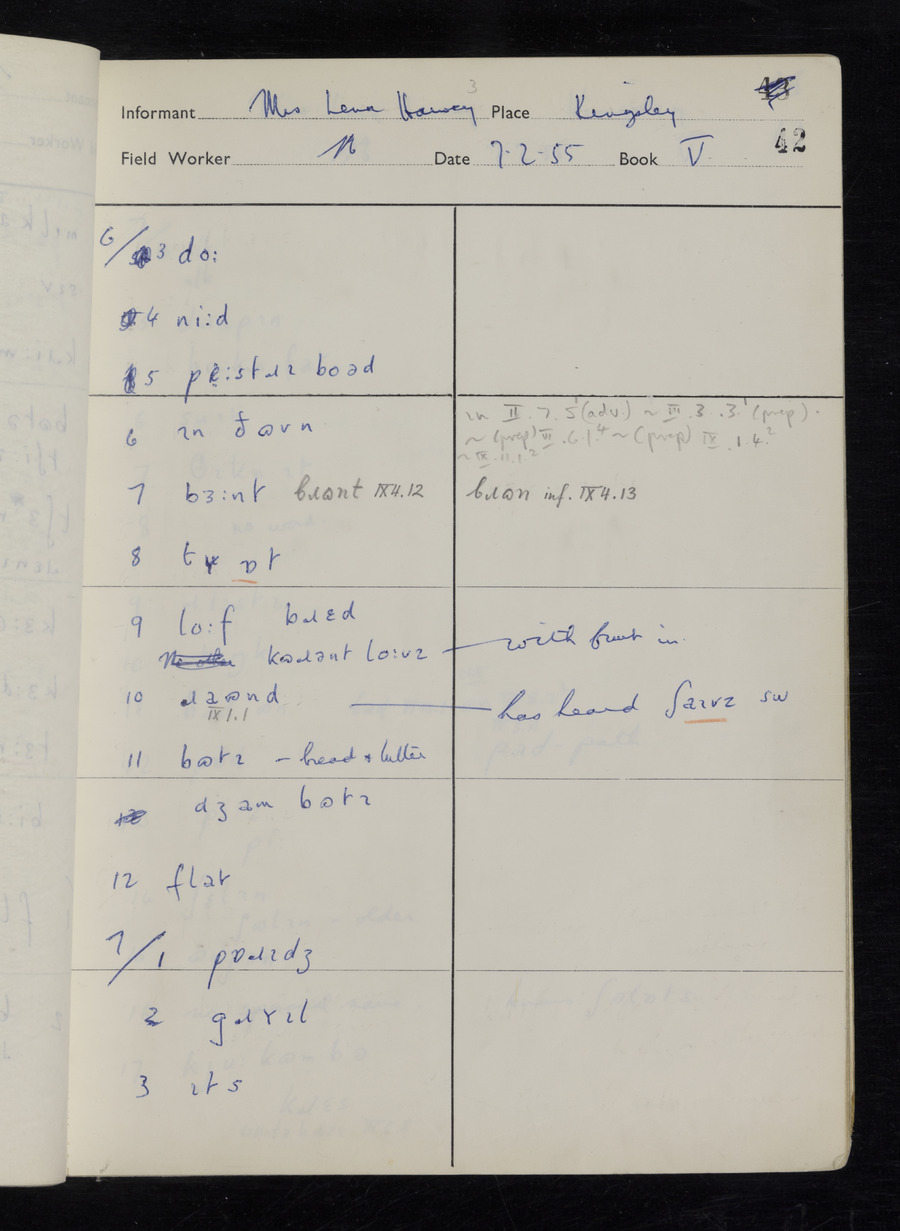 3
Informant Mrs Lena Harvey Place Kingsley
42
Field Worker N Date 7·2·55 Book V
6/3 do:
4 ni:d
5 pɛ:stɹɪ boəd
6 ɪn ðʊvn
ɪn II.7.5 (adv.) ~ III.3.3¹ (prep).
~ (prep) VI.6.1.⁴ ~ (prep) IX.1.4.²
~ IX.11.1.²
7 bɜ:nt bɹɷnt IX4.12
bɹɷn inf. IX4.13
8 ɒt
9 lo:f bɹɛd
kɷɹənt lo:vz
with fruit in
10 ɹaɷnd
IX1.1
has heard ʃaɪvz sw
11 bɷtɪ – bread & butter
dʒam bɷtɪ
12 flat
7/1 pɒɹɪdʒ
2 gɹʏɪl
3 ɪts